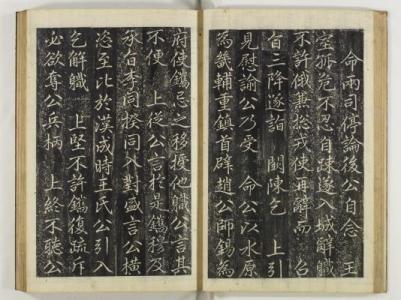 命兩司停論後公自念　王
室孤危不忍自疎遂入城解職
不許俄兼総戎使再辭而　召
旨三降遂詣　闕陳乞　上引
見慰諭公乃受　命公以水原
為畿輔重鎮首辟趙公師錫為
府使鑴忌之移擬他職公言其
不便　上從公言於是鑴積及
承旨李同揆同入對盛言公横
恣至比於漢成時王氏公引入
乞解職　上堅不許鑴復疏斥
必欲奪公兵柄　上終不聽公